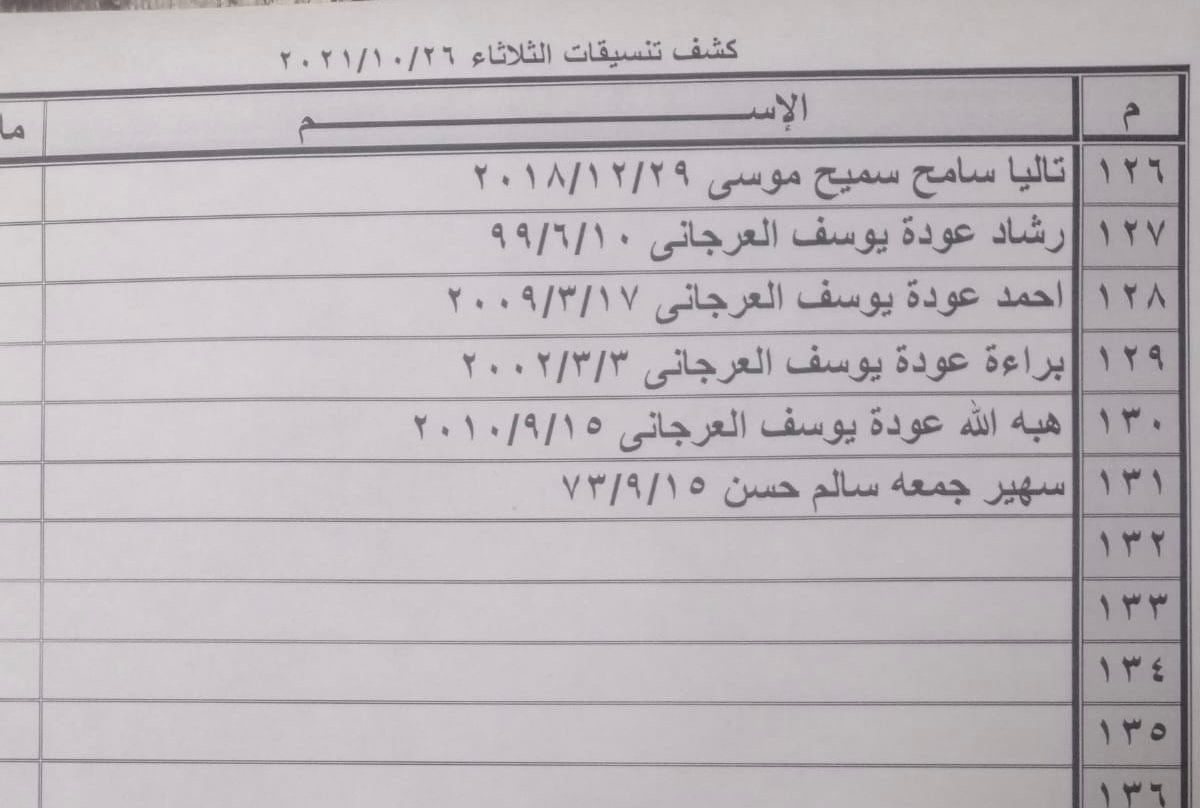 كشف تنسيقات الثلاثاء ٢٠٢١/١٠/٢٦
م الإســـــــم ما
١٢٦ تاليا سامح سميح موسى ٢٠١٨/١٢/٢٩
١٢٧ رشاد عودة يوسف العرجانى ٩٩/٦/١٠
١٢٨ احمد عودة يوسف العرجانى ٢٠٠٩/٣/١٧
١٢٩ براءة عودة يوسف العرجانى ٢٠٠٢/٣/٣
١٣٠ هبه الله عودة يوسف العرجانى ٢٠١٠/٩/١٥
١٣١ سهير جمعه سالم حسن ٧٣/٩/١٥
١٣٢
١٣٣
١٣٤
١٣٥
١٣٦